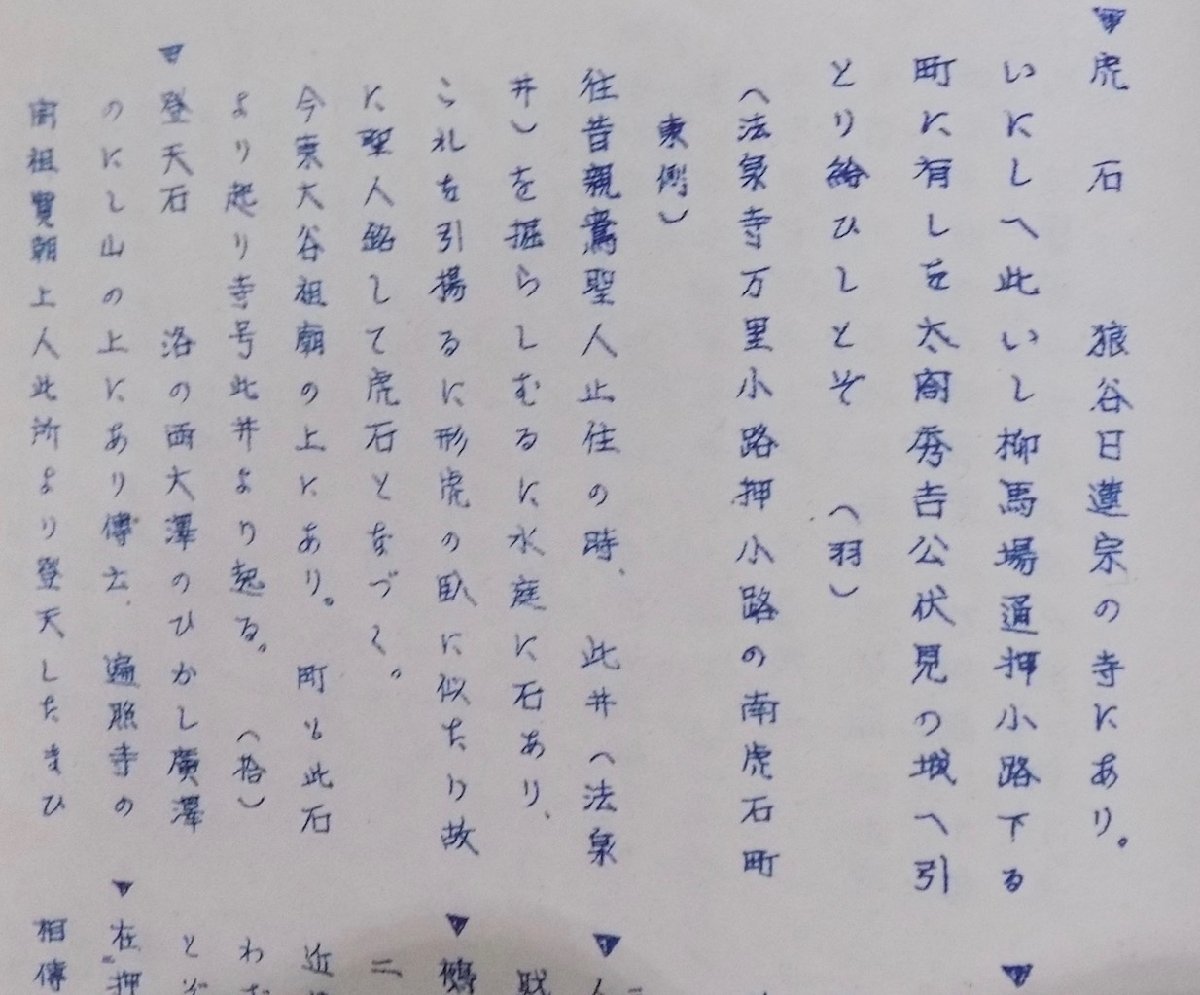 ▼虎 石 狼谷日蓮宗の寺にあり。
いにしへ此いし柳馬場通押小路下る
町に有しを太閤秀吉公伏見の城へ引
とり給ひしとぞ (羽)
(法泉寺万里小路押小路の南虎石町
東側)
往昔親鸞聖人止住の時、此井(法泉
井)を掘らしむるに水庭に石あり、
これを引揚るに形虎の臥に似たり故
に聖人銘して虎石となづく。
今東大谷祖廟の上にあり。町も此石
より起り寺号此井より起る。 (拾)
▼登天石 洛の西大澤のひかし廣澤
のにし山の上にあり傳云、遍照寺の
宙祖寛朝上人此所より登天したまひ
▼
▼人
財
▼鵺
二
近
わ
とぞ
▼在押
相傳